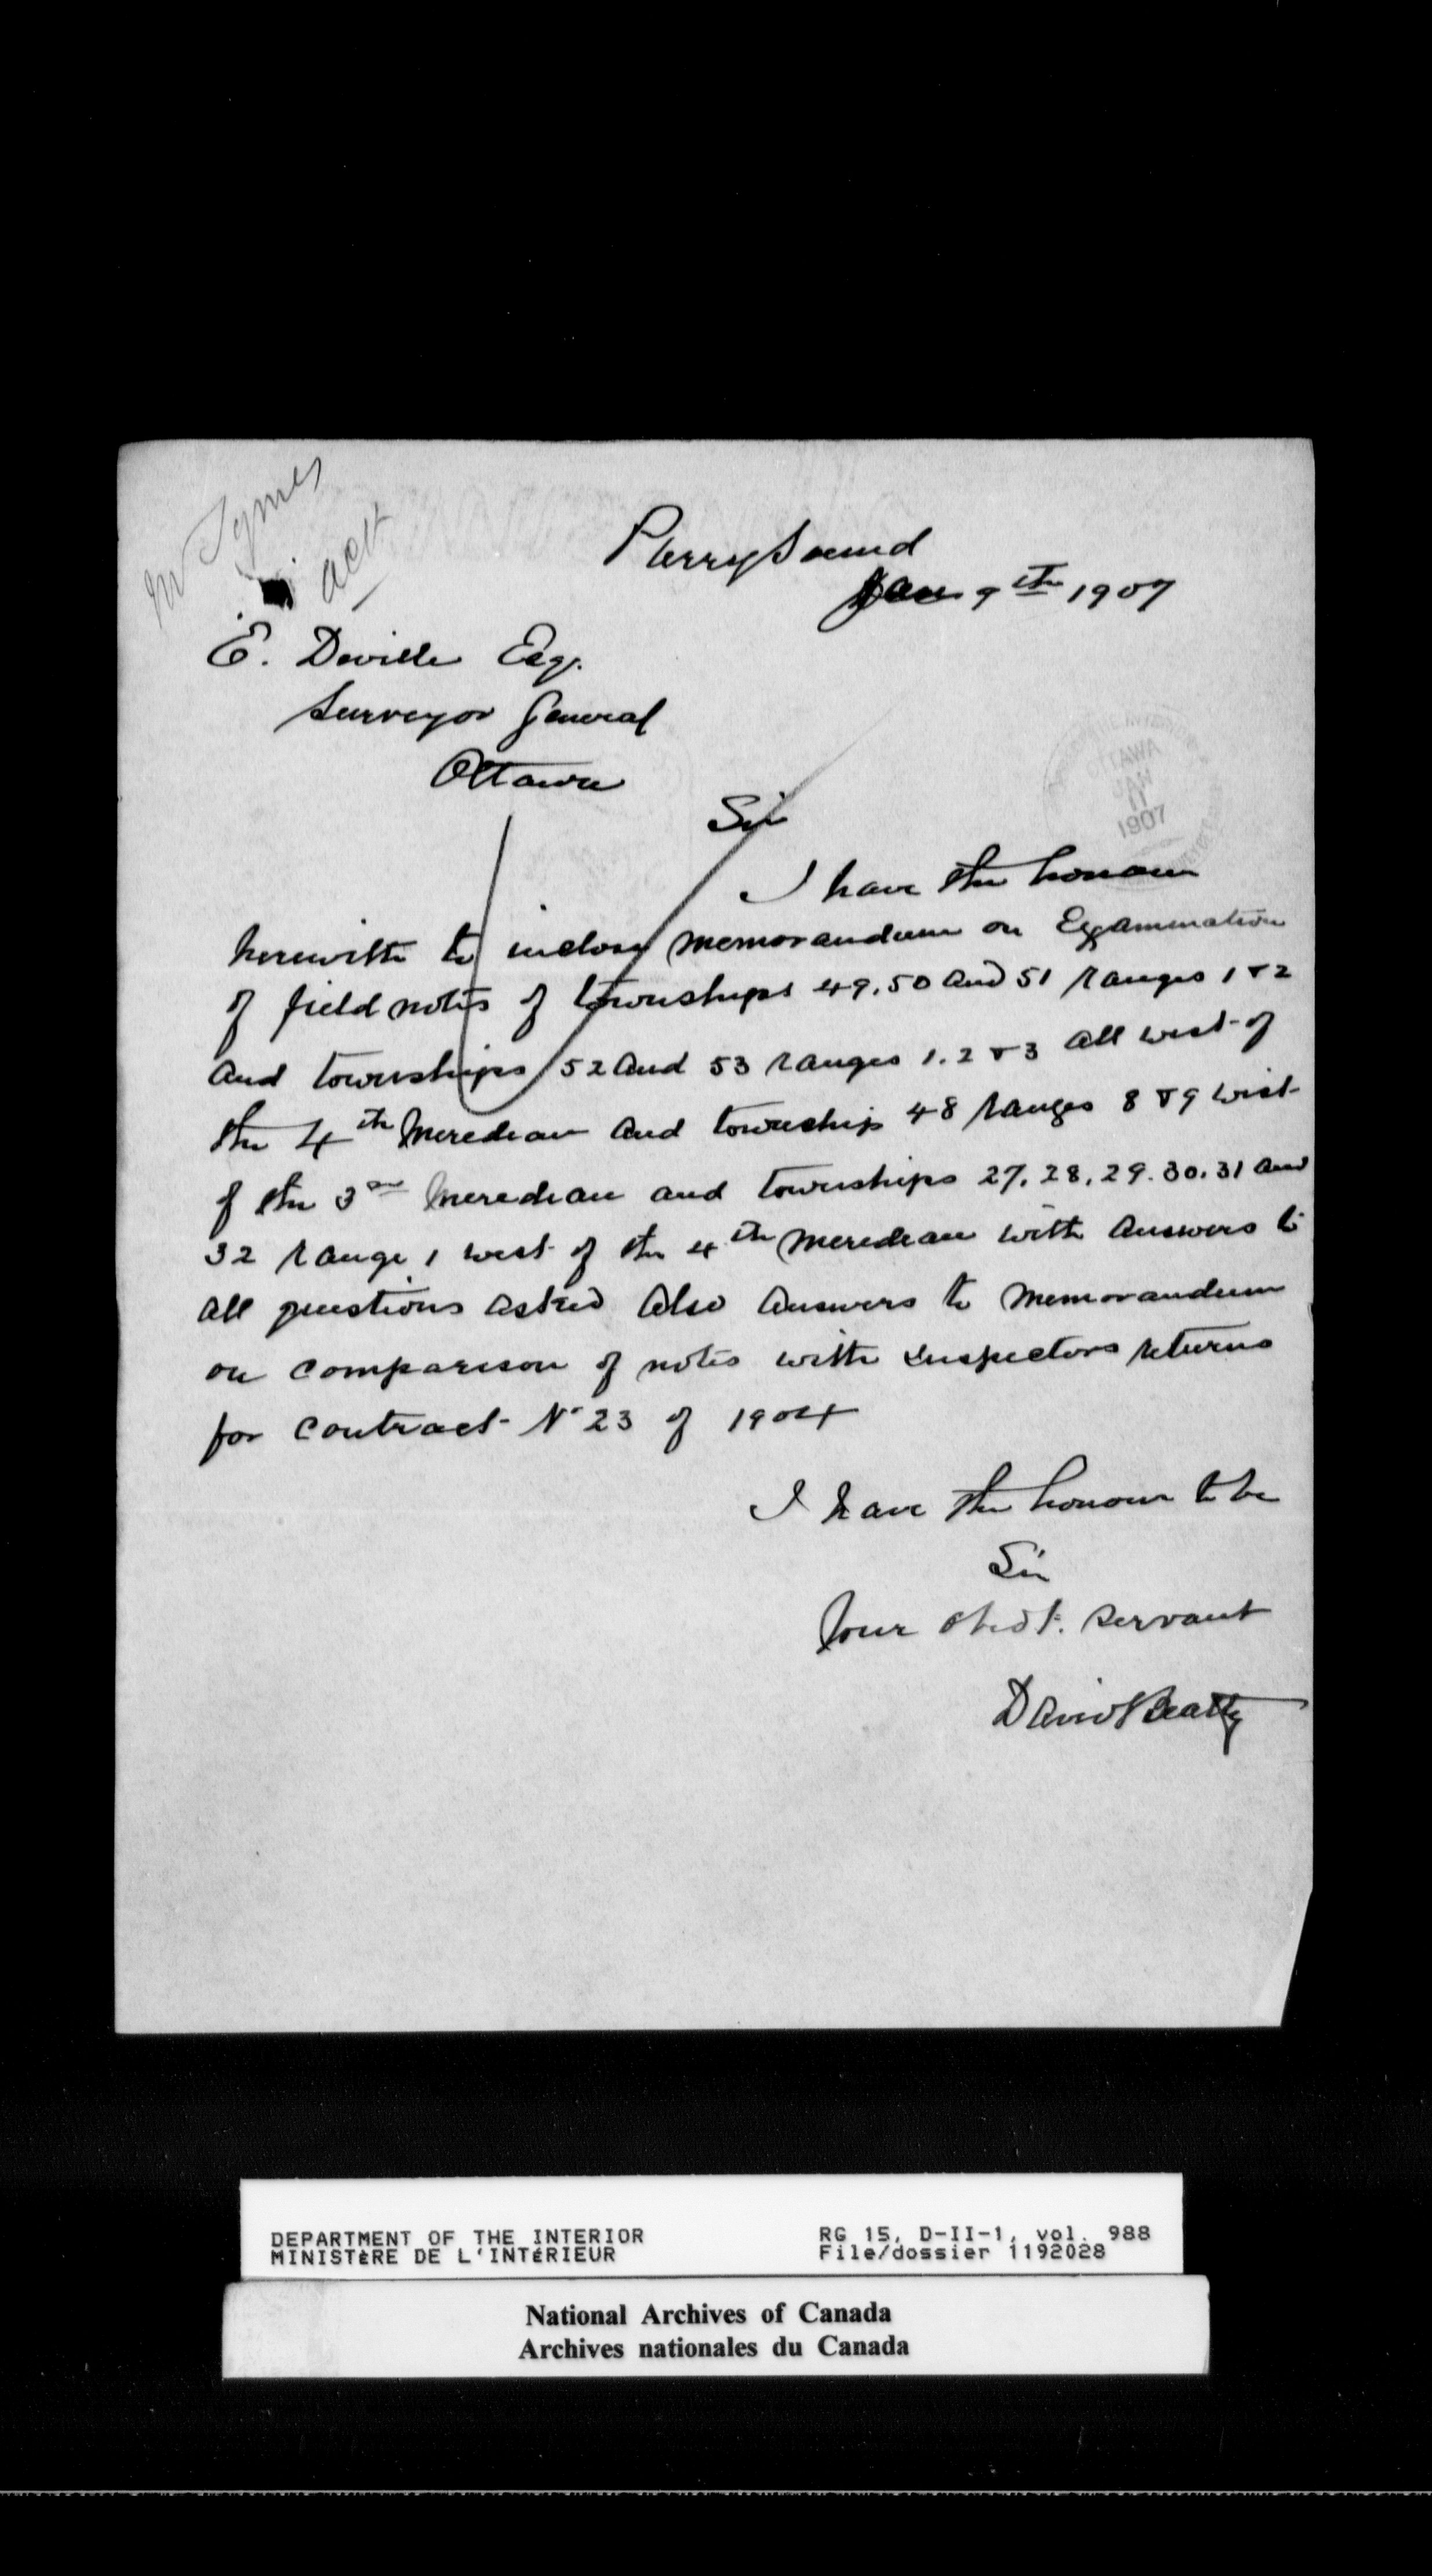 Mr Symes
ack
Parry Sound
Jan 9th 1907
E. Deville Esq.
Surveyor General
Ottawa
OTTAWA
JAN
11
1907
Sir
I have the honour
herewith to inclose memorandum on Examination
of field notes of townships 49, 50 and 51 ranges 1 & 2
and townships 52 and 53 ranges 1. 2 & 3 all west of
the 4th Meredian and township 48 ranges 8 & 9 west
of the 3rd Meredian and townships 27, 28, 29. 30. 31 and
32 range 1 west of the 4th Meredian with answers to
all questions asked also answers to memorandum
on comparison of notes with Inspectors returns
for contract No 23 of 1904
I have the honour to be
Sir
Your obedt. servant
David Beatty
DEPARTMENT OF THE INTERIOR RG 15, D-II-1, vol. 988
MINISTÈRE DE L'INTÉRIEUR File/dossier 1192028
National Archives of Canada
Archives nationales du Canada